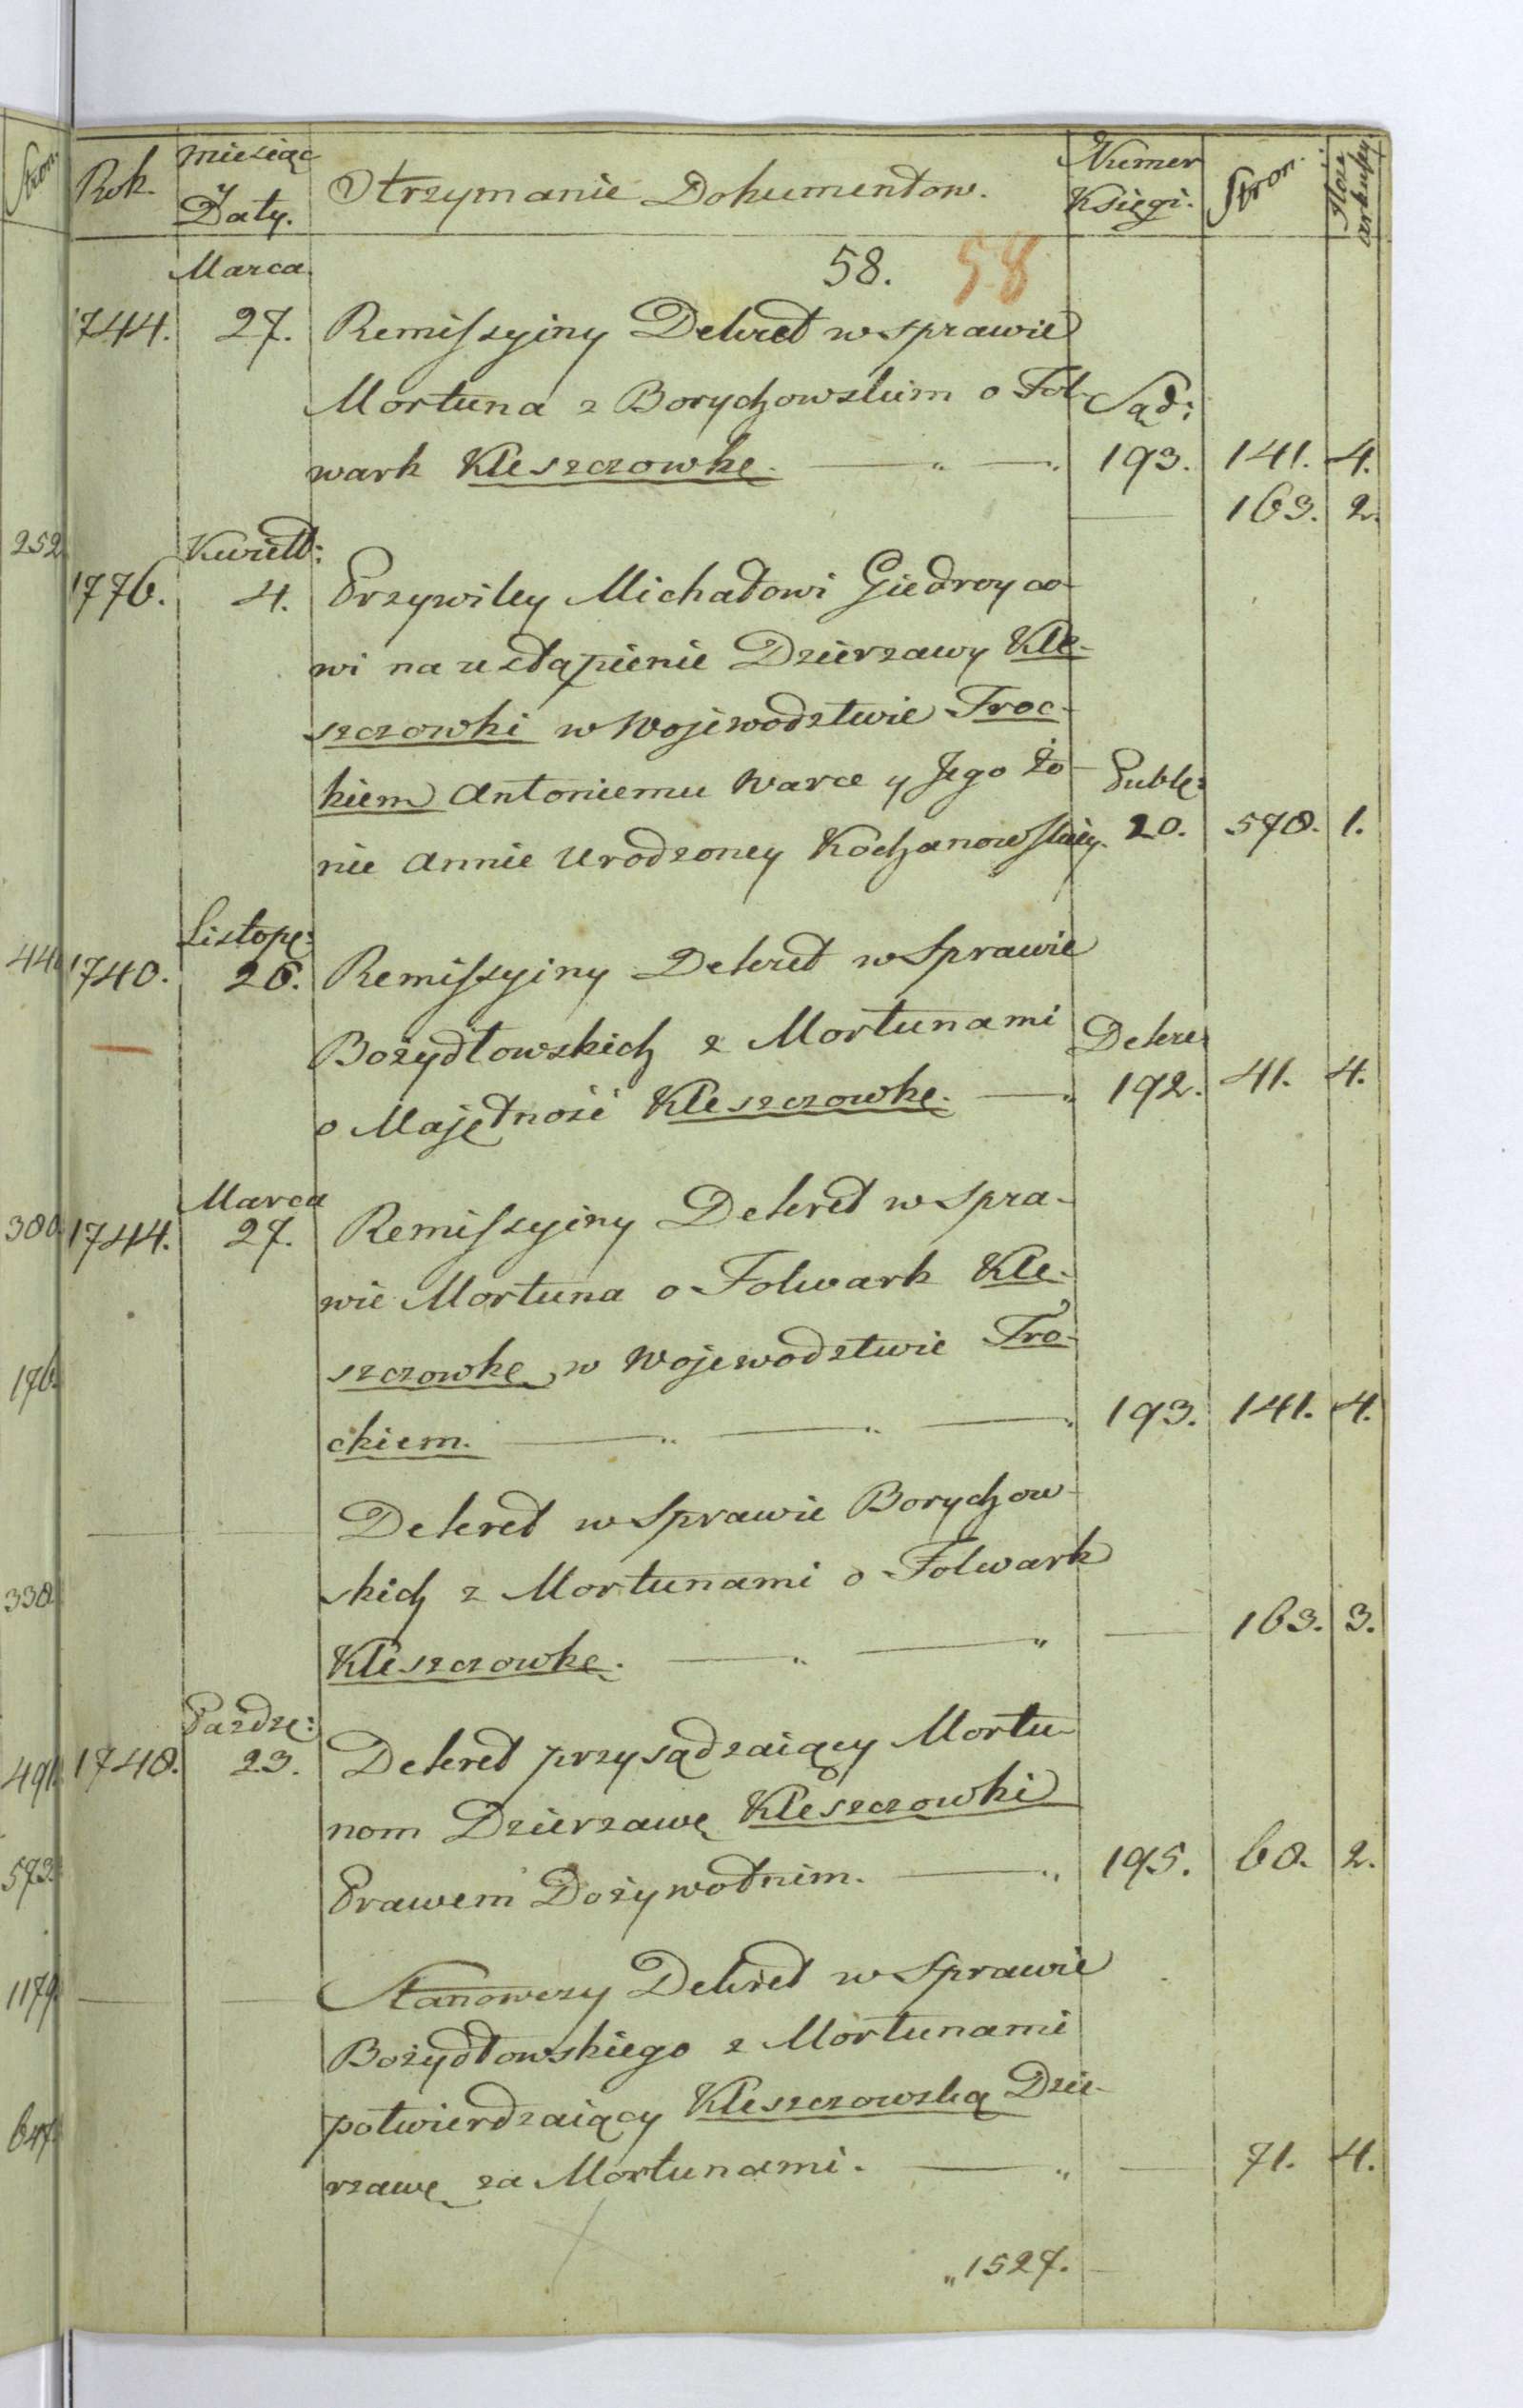 Stron.
Rok.
Miesiąc
y
Daty.
Otrzymanie Dokumentow.
Numer
Księgi.
Stron.
Ilość
arkuszy.
58. 58
Marca
1744. 27. Remissyiny Dekret w sprawie
Mortuna z Borychowskim o Fol- Sąd:
wark Kleszczowkę. 193. 141. 4.
163. 2.
252
Kwiet:
1776. 4. Przywiley Michałowi Giedroyco-
wi na ustąpienie Dzierzawy Kle-
szczowki w Wojewodztwie Troc-
kiem Antoniemu Warce y Jego Żo- Publ:
nie Annie Urodzoney Kochanowskiey. 20. 578. 1.
Listop:
1740. 26. Remissyiny Dekret w Sprawie
Bożydłowskich z Mortunami Dekre:
o Majętność Kleszczowkę. 192. 41. 4.
380.
Marca
1744. 27. Remissyiny Dekret w spra-
wie Mortuna o Folwark Kle-
szczowkę w Wojewodztwie Tro-
176.
ckiem. 193. 141. 4.
Dekret w Sprawie Borychow-
skich z Mortunami o Folwark
338.
Kleszczowkę. 163. 3.
Pazdz:
491. 1748. 23. Dekret przysądzaiący Mortu-
nom Dzierzawę Kleszczowki
573.
Prawem Dożywotnim. 195. 68. 2.
1179.
Stanowczy Dekret w Sprawie
Bożydłowskiego z Mortunami
potwierdzaiący Kleszczowską Dzie-
647.
rzawę za Mortunami. 71. 4.
„1527.